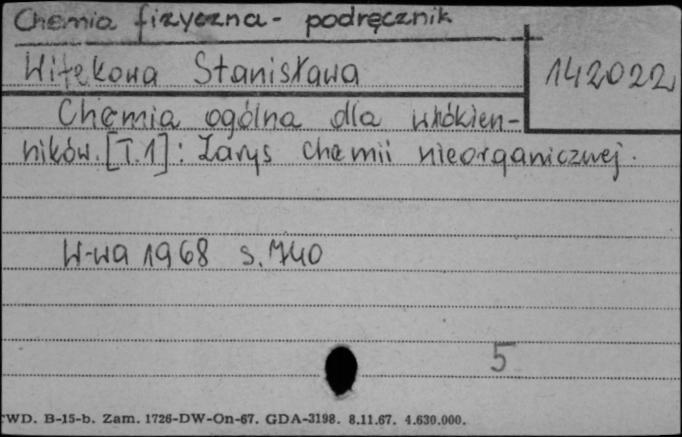 Chemia fizyczna - podręcznik
Witekowa Stanisława
142022
Chemia ogólna dla włókien-
ników. [T.1]: Zarys chemii nieorganicznej.
W-wa 1968 s. 740
5
WD. B-15-b. Zam. 1726-DW-On-67. GDA-3198. 8.11.67. 4.630.000.